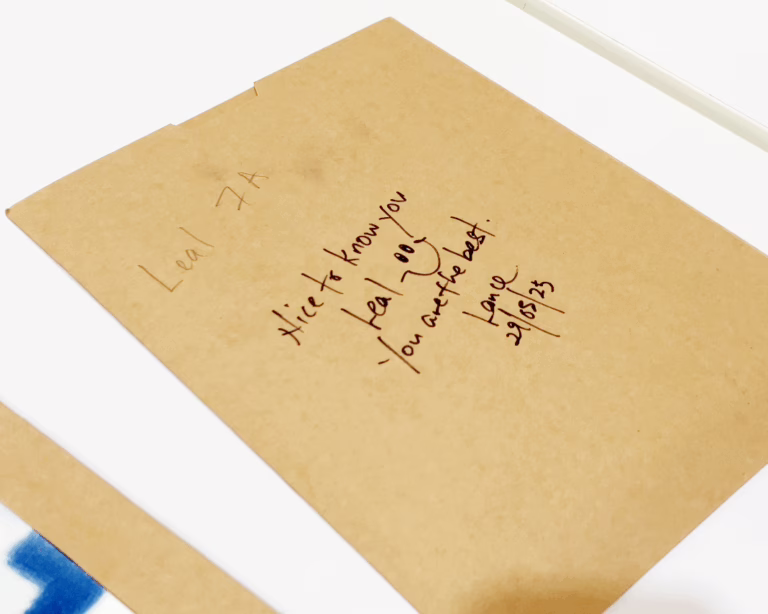 Leal 7A
Nice to know you
Leal
You are the best.
Lance
29/05/23